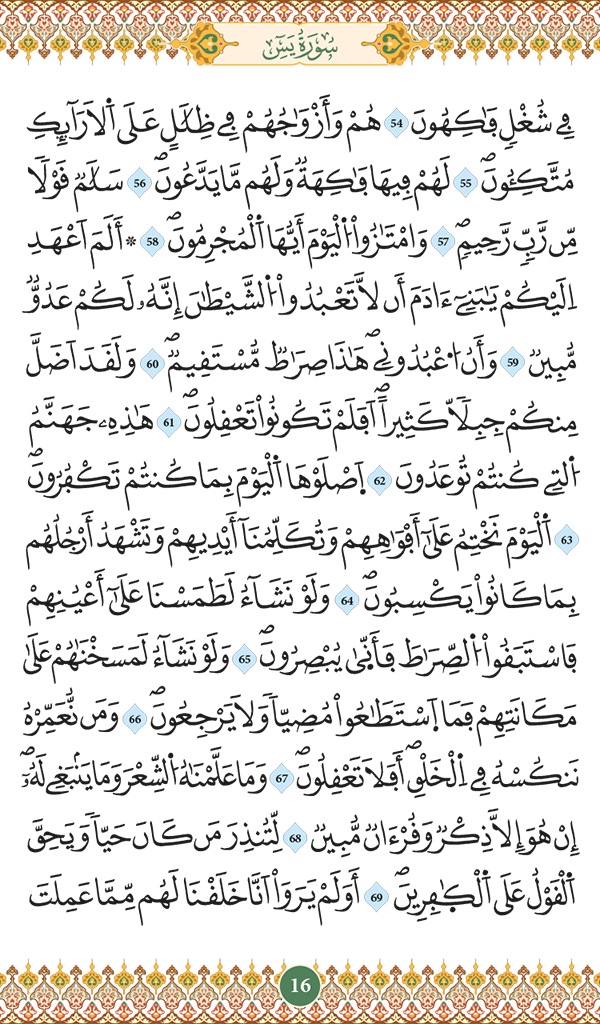 سُورَةُ يَسٓ
فِے شُغْلٖ فَٰكِهُونَ 54 هُمْ وَأَزْوَٰجُهُمْ فِے ظِلَٰلٍ عَلَى اَ۬لَارَآئِكِ
مُتَّكِـُٔونَۖ 55 لَهُمْ فِيهَا فَٰكِهَةٞ وَلَهُم مَّا يَدَّعُونَۖ 56 سَلَٰمٞ قَوْلاٗ
مِّن رَّبّٖ رَّحِيمٖۖ 57 وَامْتَٰزُواْ اُ۬لْيَوْمَ أَيُّهَا اَ۬لْمُجْرِمُونَۖ 58 ۞أَلَمَ اَعْهَدِ
اِلَيْكُمْ يَٰبَنِےٓ ءَادَمَ أَن لاَّ تَعْبُدُواْ اُ۬لشَّيْطَٰنَ إِنَّهُۥ لَكُمْ عَدُوّٞ
مُّبِينٞ 59 وَأَنُ اُ۟عْبُدُونِےۖ هَٰذَا صِرَٰطٞ مُّسْتَقِيمٞۖ 60 وَلَقَدَ اَضَلَّ
مِنكُمْ جِبِلّاٗ كَثِيراًۖ اَفَلَمْ تَكُونُواْ تَعْقِلُونَۖ 61 هَٰذِهِۦ جَهَنَّمُ
اُ۬لتِے كُنتُمْ تُوعَدُونَ 62 اَ۪صْلَوْهَا اَ۬لْيَوْمَ بِمَا كُنتُمْ تَكْفُرُونَۖ
63 اَ۬لْيَوْمَ نَخْتِمُ عَلَىٰٓ أَفْوَٰهِهِمْ وَتُكَلِّمُنَآ أَيْدِيهِمْ وَتَشْهَدُ أَرْجُلُهُم
بِمَا كَانُواْ يَكْسِبُونَۖ 64 وَلَوْ نَشَآءُ لَطَمَسْنَا عَلَىٰٓ أَعْيُنِهِمْ
فَاسْتَبَقُواْ اُ۬لصِّرَٰطَ فَأَنّ۪ىٰ يُبْصِرُونَۖ 65 وَلَوْ نَشَآءُ لَمَسَخْنَٰهُمْ عَلَىٰ
مَكَانَتِهِمْ فَمَا اَ۪سْتَطَٰعُواْ مُضِيّاٗ وَلَا يَرْجِعُونَۖ 66 وَمَن نُّعَمِّرْهُ
نَنكُسْهُ فِے اِ۬لْخَلْقِۖ أَفَلَا تَعْقِلُونَۖ 67 وَمَا عَلَّمْنَٰهُ اُ۬لشِّعْرَ وَمَا يَنۢبَغِے لَهُۥٓۖ
إِنْ هُوَ إِلاَّ ذِكْرٞ وَقُرْءَانٞ مُّبِينٞ 68 لِّتُنذِرَ مَن كَانَ حَيّاٗ وَيَحِقَّ
اَ۬لْقَوْلُ عَلَى اَ۬لْكٰ۪فِرِينَۖ 69 أَوَلَمْ يَرَوَاْ اَنَّا خَلَقْنَا لَهُم مِّمَّا عَمِلَتَ
16